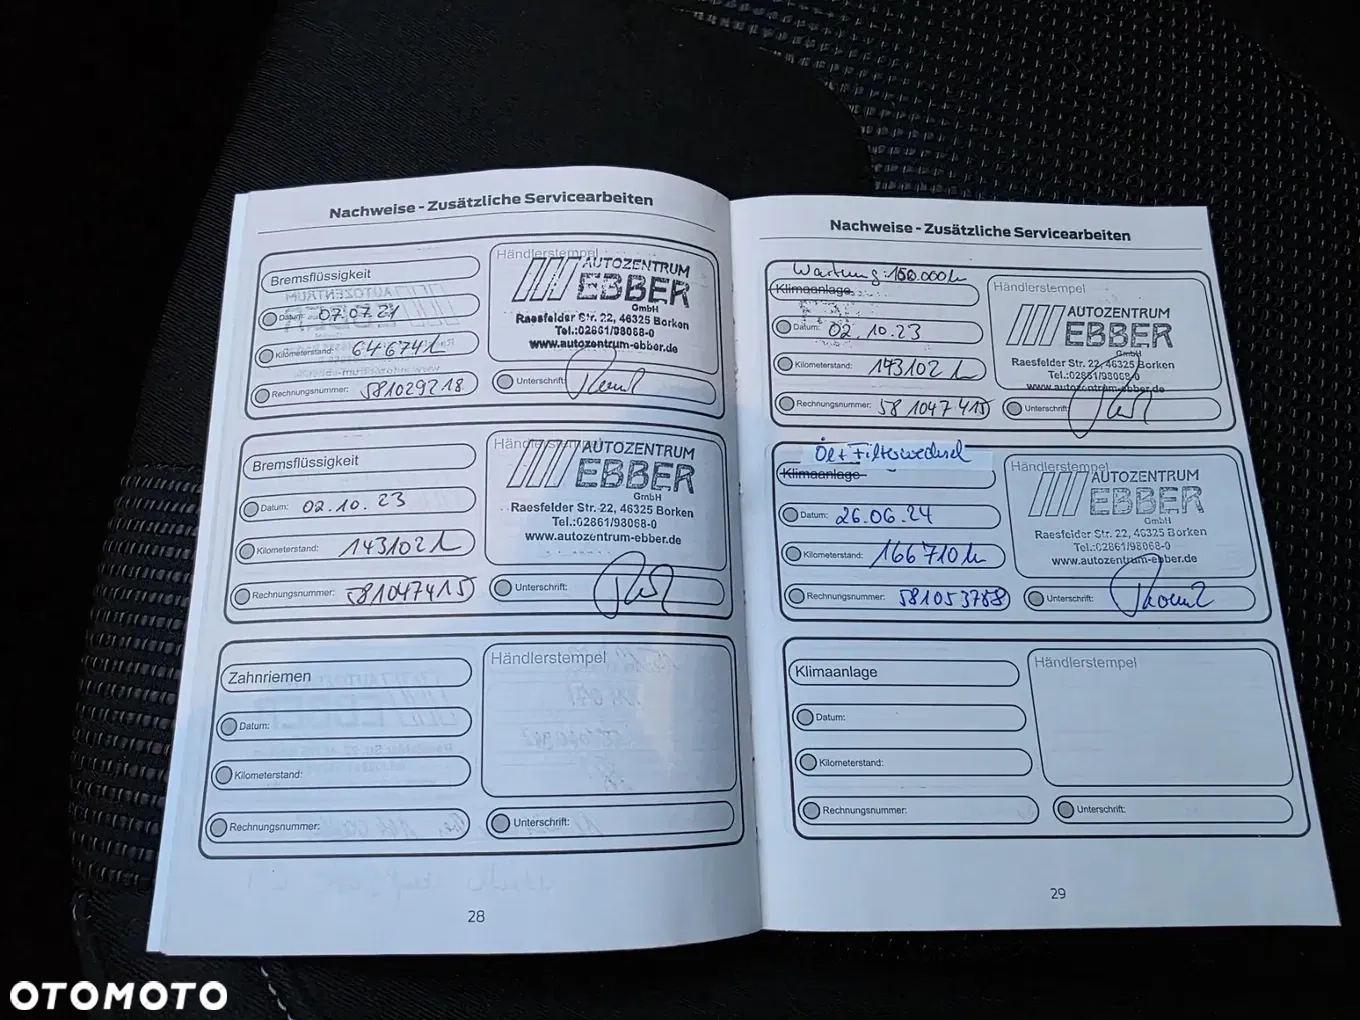 Nachweise - Zusätzliche Servicearbeiten
Bremsflüssigkeit
Datum: 07.07.21
Kilometerstand: 64674 k
Rechnungsnummer: 581029218
Händlerstempel
AUTOZENTRUM
EBBER
GmbH
Raesfelder Str. 22, 46325 Borken
Tel.:02861/98068-0
www.autozentrum-ebber.de
Unterschrift:
Bremsflüssigkeit
Datum: 02.10.23
Kilometerstand: 143102 k
Rechnungsnummer: 581047415
Händlerstempel
AUTOZENTRUM
EBBER
GmbH
Raesfelder Str. 22, 46325 Borken
Tel.:02861/98068-0
www.autozentrum-ebber.de
Unterschrift:
Zahnriemen
Datum:
Kilometerstand:
Rechnungsnummer:
Händlerstempel
Unterschrift:
28
Nachweise - Zusätzliche Servicearbeiten
Wartung: 150.000k
Klimaanlage
Datum: 02.10.23
Kilometerstand: 143102 k
Rechnungsnummer: 581047415
Händlerstempel
AUTOZENTRUM
EBBER
GmbH
Raesfelder Str. 22, 46325 Borken
Tel.:02861/98068-0
www.autozentrum-ebber.de
Unterschrift:
Öl + Filterwechsel
Klimaanlage
Datum: 26.06.24
Kilometerstand: 166710 k
Rechnungsnummer: 581053788
Händlerstempel
AUTOZENTRUM
EBBER
GmbH
Raesfelder Str. 22, 46325 Borken
Tel.:02861/98068-0
www.autozentrum-ebber.de
Unterschrift:
Klimaanlage
Datum:
Kilometerstand:
Rechnungsnummer:
Händlerstempel
Unterschrift:
29
OTOMOTO